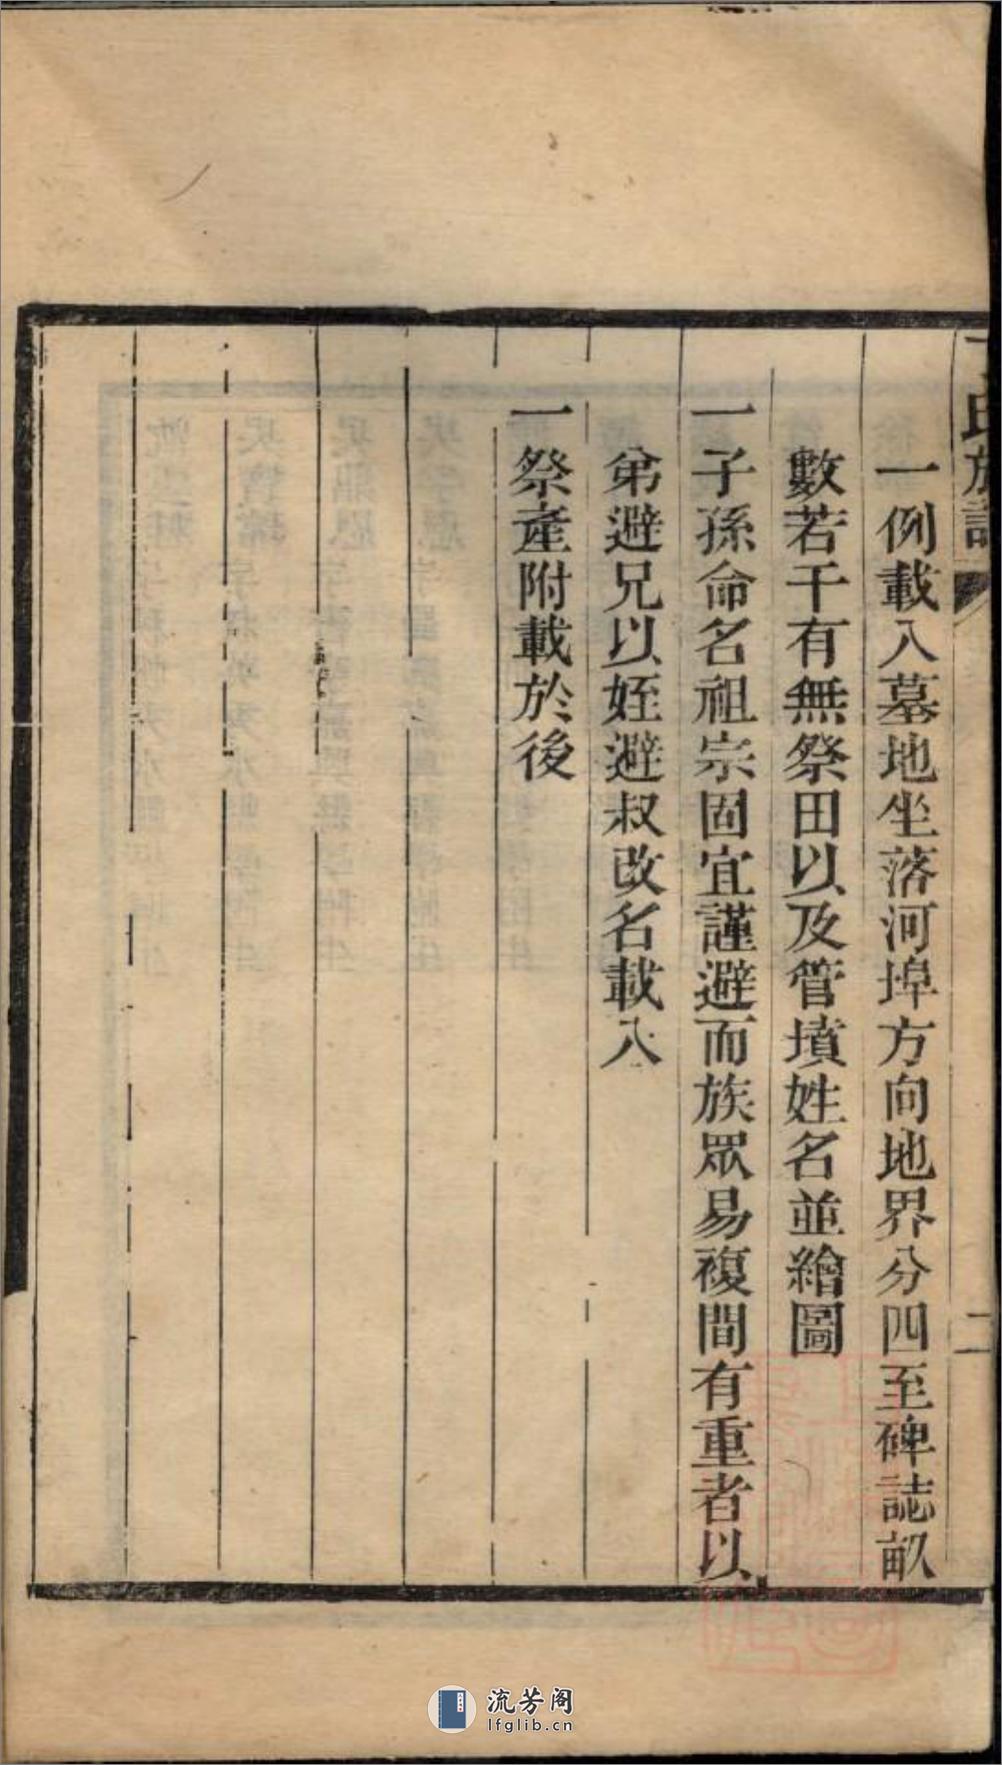 氏族譜
二
一例載入墓地坐落河埠方向地界分四至碑誌畝
數若干有無祭田以及管墳姓名並繪圖
一子孫命名祖宗固宜謹避而族眾易複間有重者以
弟避兄以姪避叔改名載入
一祭產附載於後
流芳阁
lfglib.cn